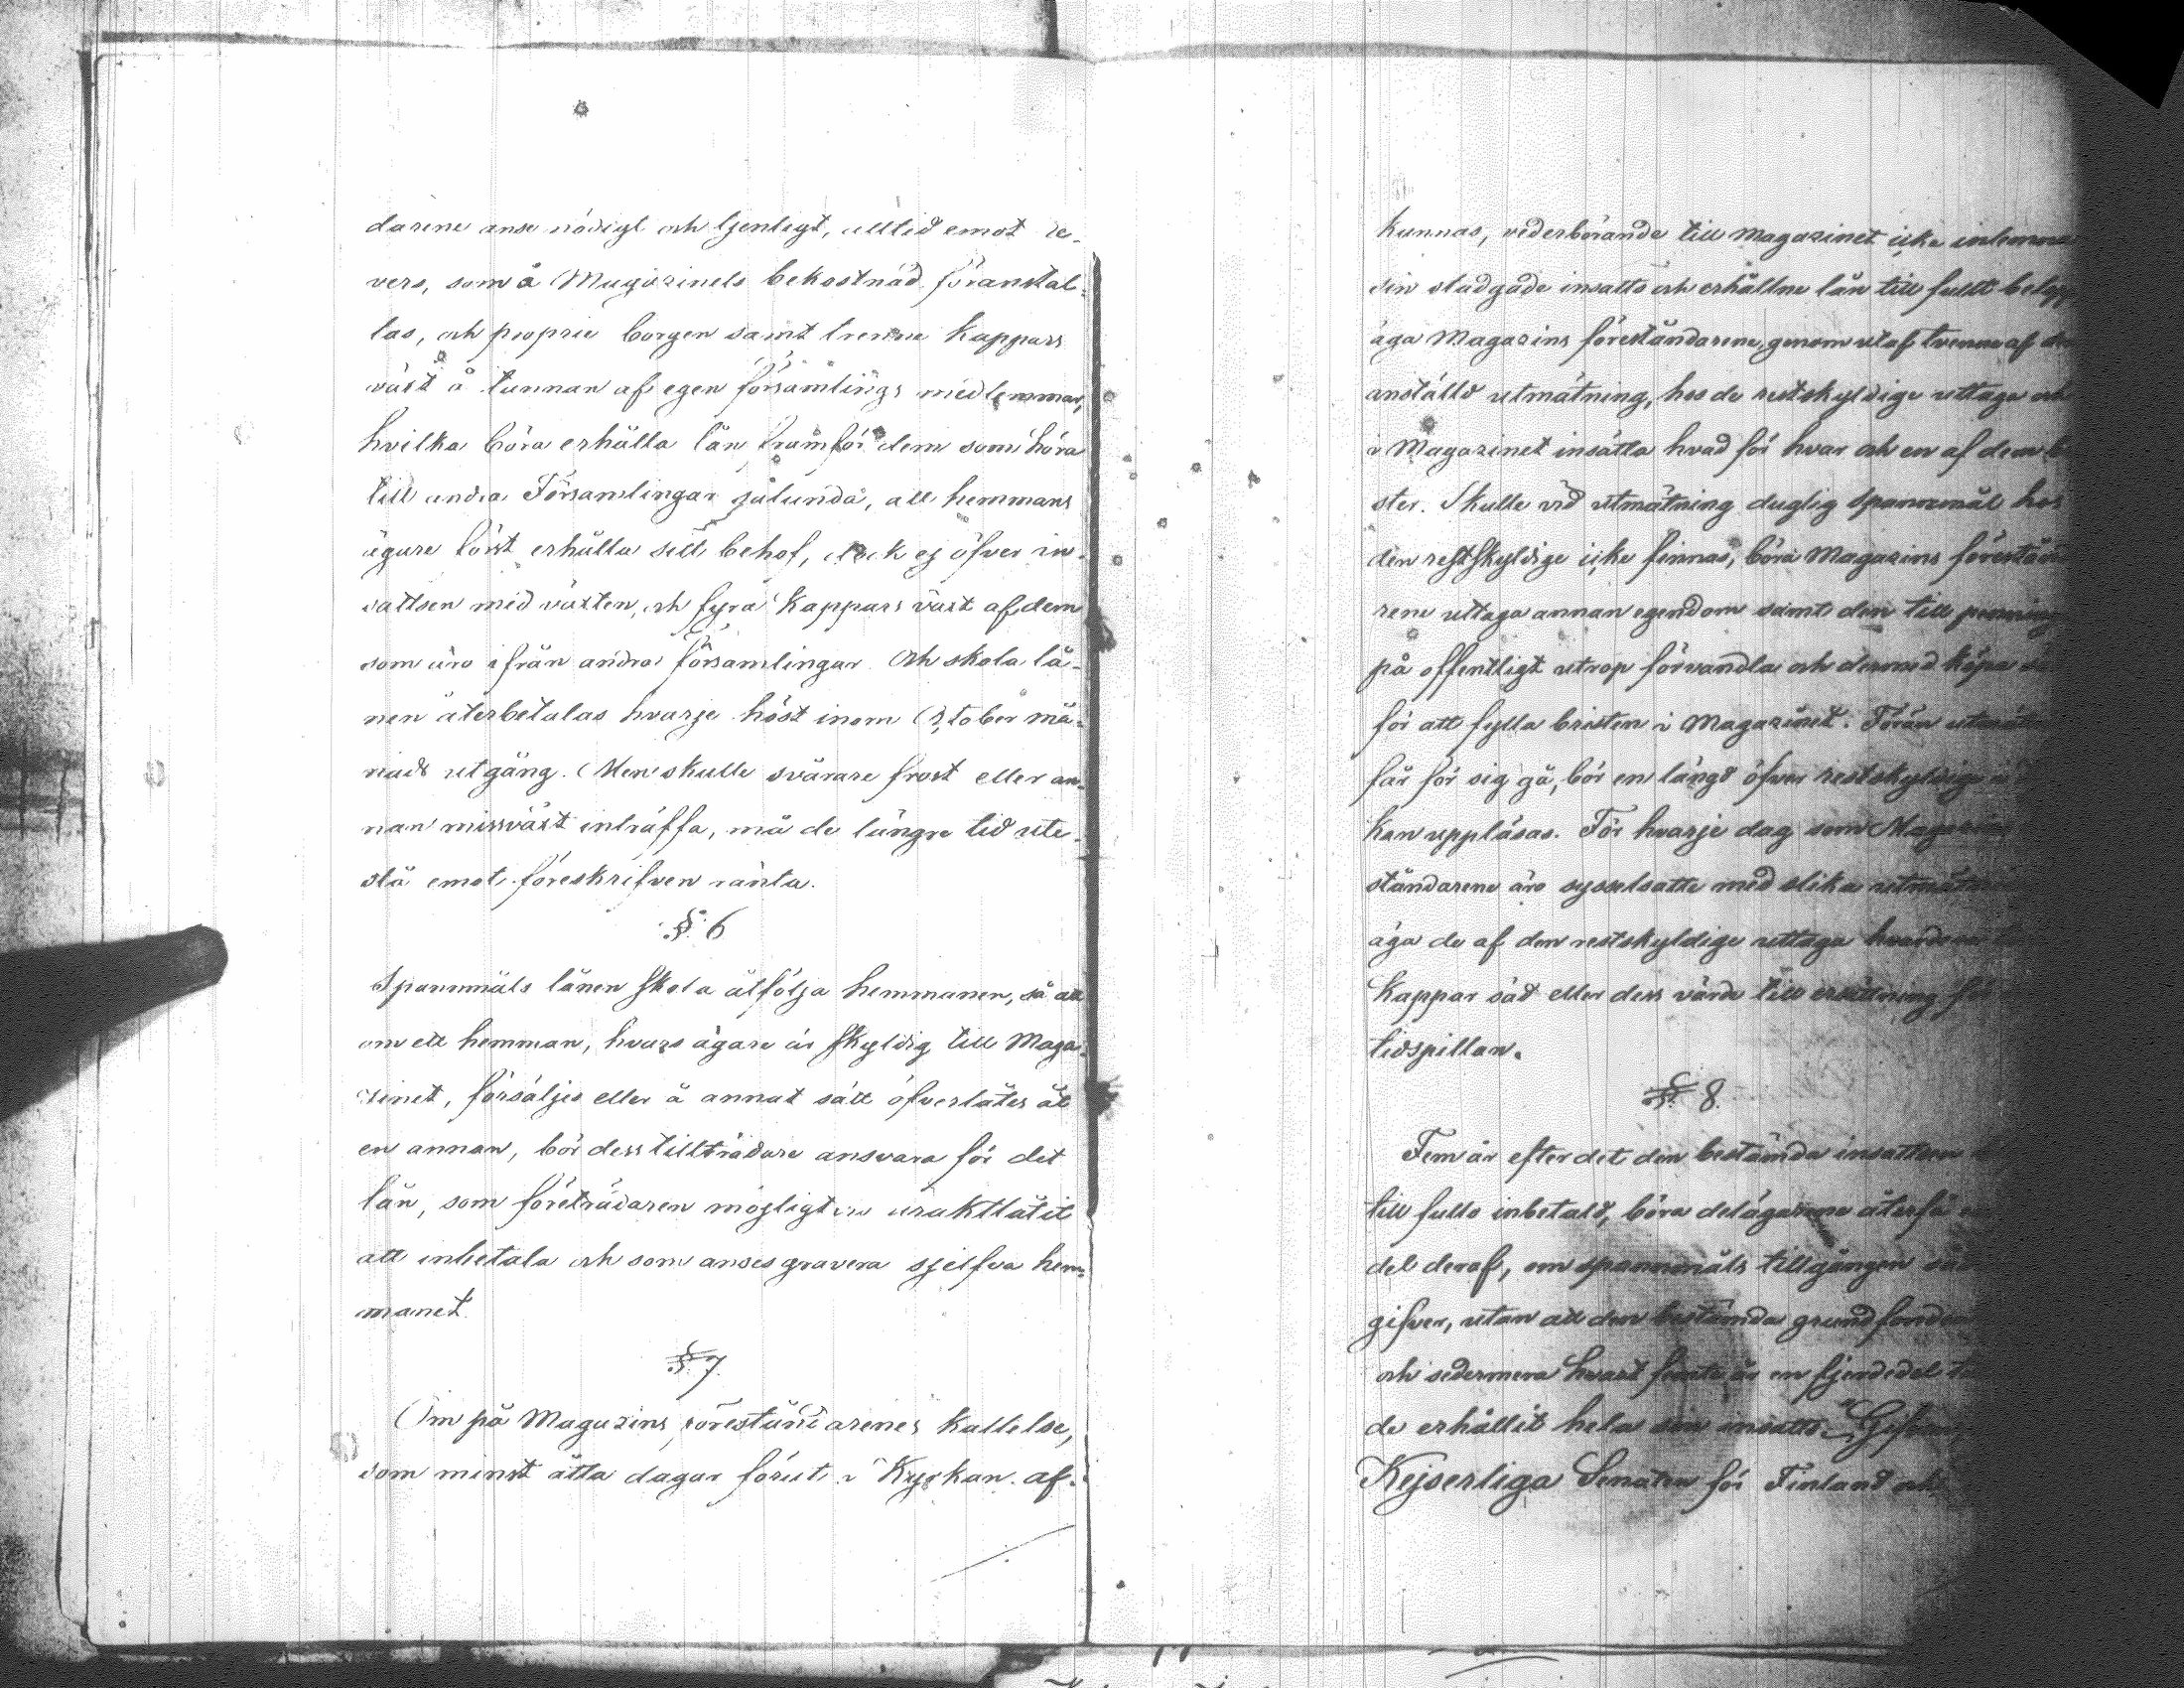 darene anse nödigt och tjenligt, alltid emot re-
vers, som å Magazinets bekostnad föranstal-
las, och proprie borgen samt trenne kappars
växt å tunnan af egen församlings medlemmar,
hvilka böra erhålla lån framför dem som höra
till andra Församlingar sålunda, att hemmans
ägare först erhålla sitt behof, dock ej öfver in-
sattsen med växten, och fyra kappars växt af dem
som äro ifrån andra församlingar. Och skola lå-
nen återbetalas hvarje höst inom October må-
nads utgång. Men skulle svårare frost eller an-
nan missväxt inträffa, må de längre tid ute-
stå emot föreskrifven ränta.
§. 6
Spannmåls lånen skola åtfölja hemmanen, så att
om ett hemman, hvars ägare är skyldig till Maga-
zinet, försäljes eller å annat sätt öfverlåtes åt
en annan, bör dess tillträdare ansvara för det
lån, som företrädaren möjligt uraktlåtit
att inbetala och som anses gravera sjelfva hem-
manet.
§. 7.
Om på Magazins föreståndarenes kallelse,
som minst åtta dagar förut i Kyrkan af-
kunnas, vederbörande till Magazinet icke inlemna
sin stadgade insatts och erhållne lån till fullt belopp
äga Magazins föreståndarene, genom utaf tvenne af
anställd utmätning, hos de restskyldige uttaga och
i Magazinet insätta hvad för hvar och en af dem
ster. Skulle vid utmätning duglig spannmål hos
den restskyldige icke finnas, böra Magazins förestånda
rene uttaga annan egendom samt den till penning
på offentligt utrop förvandla och dermed köpa
för att fylla bristen i Magazinet. Förän utmätning
får för sig gå, bör en längd öfver restskyldige i
kan uppläsas. För hvarje dag som Magazins
ståndarene äro sysselsatte med slika utmätn
äga de af den restskyldige uttaga hvardera
Kappar säd eller dess värde till ersättning för
tidspillan.
§. 8.
Fem år efter det den bestämda insattsen
till fullo inbetald, böra delägarene återfå en
del deraf, om spannmåls tillgången så
gifver, utan att den bestämda grundfonden
och sedermera hvart femte år en fjerdedel
de erhållit hela sin insatts. Gifven
Kejserliga Senaten för Finland och